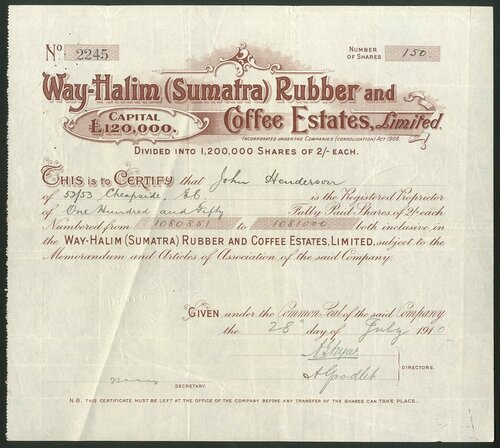 No. 2245
NUMBER OF SHARES 150
WAY-HALIM (SUMATRA) RUBBER AND
CAPITAL £120,000. COFFEE ESTATES, LIMITED.
INCORPORATED UNDER THE COMPANIES (CONSOLIDATION) ACT 1908.
DIVIDED INTO 1,200,000 SHARES OF 2/- EACH.
THIS is to CERTIFY that John Henderson
of 53/53 Cheapside, E.C. is the Registered Proprietor
of One Hundred and Fifty Fully Paid Shares of 2/- each
Numbered from 1080851 to 1081000 both inclusive in
the WAY-HALIM (SUMATRA) RUBBER AND COFFEE ESTATES, LIMITED, subject to the
Memorandum and Articles of Association of the said Company.
GIVEN under the Common Seal of the said Company
the 28 day of July 1910
A Goodlet
DIRECTORS.
SECRETARY.
N.B. THIS CERTIFICATE MUST BE LEFT AT THE OFFICE OF THE COMPANY BEFORE ANY TRANSFER OF THE SHARES CAN TAKE PLACE.